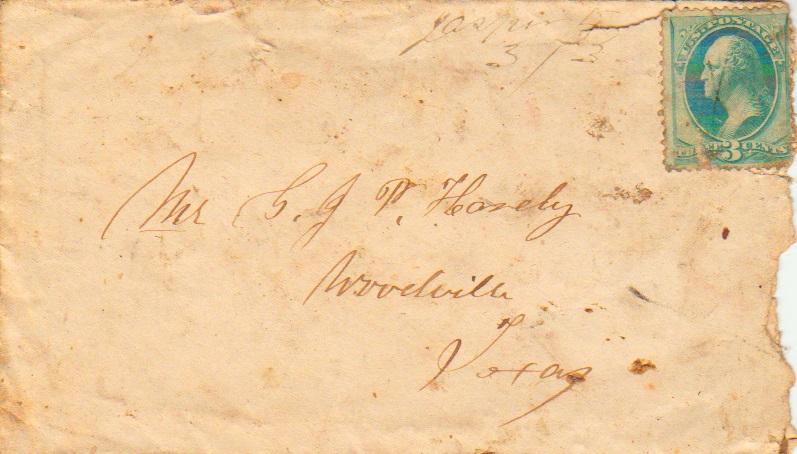 Jasper
3/3
U.S. POSTAGE
THREE 3 CENTS
Mr G. J. P. Handy
Woodville
Texas